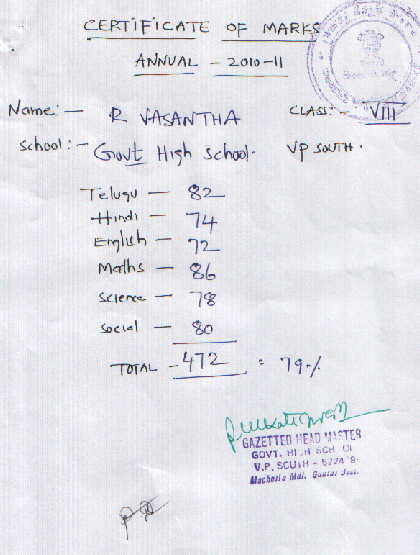 CERTIFICATE OF MARKS
ANNUAL - 2010-11
Name:- R VASANTHA CLASS:- VIII
School:- Govt High School. VP SOUTH.
Telugu - 82
Hindi - 74
English - 72
Maths - 86
Science - 78
Social - 80
TOTAL - 472 = 79%
GAZETTED HEAD MASTER
GOVT. HIGH SCH OL
V.P. SOUTH -
Macherla Mdl, Guntur Dist.